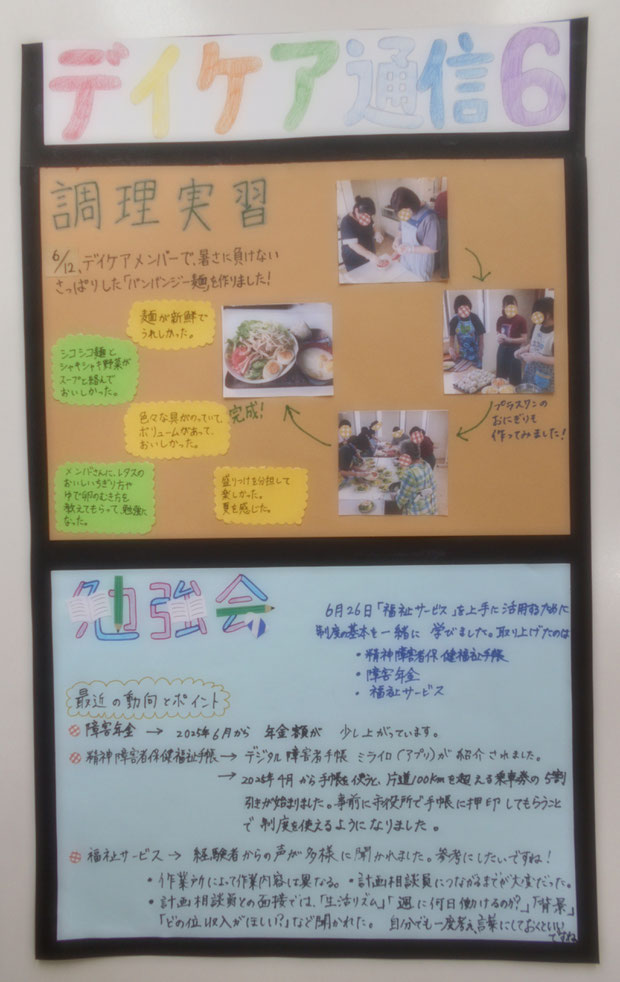 デイケア通信6
調理実習
6/12、デイケアメンバーで、暑さに負けない
さっぱりした「バンバンジー麺」を作りました!
麺が新鮮で
うれしかった。
シコシコ麺と
シャキシャキ野菜が
スープと絡んで
おいしかった。
色々な具がのっていて、
ボリュームがあって、
おいしかった。
完成!
プラスワンの
おにぎりも
作ってみました!
メンバさんに、レタスの
おいしいちぎり方や
ゆで卵のむき方を
教えてもらって、勉強に
なった。
盛りつけを分担して
楽しかった。
夏を感じた。
勉強会
6月26日「福祉サービス」を上手に活用するために
制度の基本を一緒に 学びました。取り上げたのは
・精神障害者保健福祉手帳
・障害年金
・福祉サービス
最近の動向とポイント
障害年金 → 2025年6月から 年金額が 少し上がっています。
精神障害者保健福祉手帳 → デジタル障害者手帳 ミライロ(アプリ)が 紹介されました。
→ 2025年4月から手帳を使うと、片道100kmを超える乗車券の5割
引きが始まりました。事前に市役所で手帳に押印してもらうこと
で制度を使えるようになりました。
福祉サービス → 経験者からの声が多様に聞かれました。参考にしたいですね!
・作業所によって作業内容は異なる。・計画相談員につながるまでが大変だった。
・計画相談員との面接では、「生活リズム」「週に何日働けるのか?」「背景」
「どの位収入がほしい?」など聞かれた。 自分でも一度考え、言葉にしておくといい
ですね